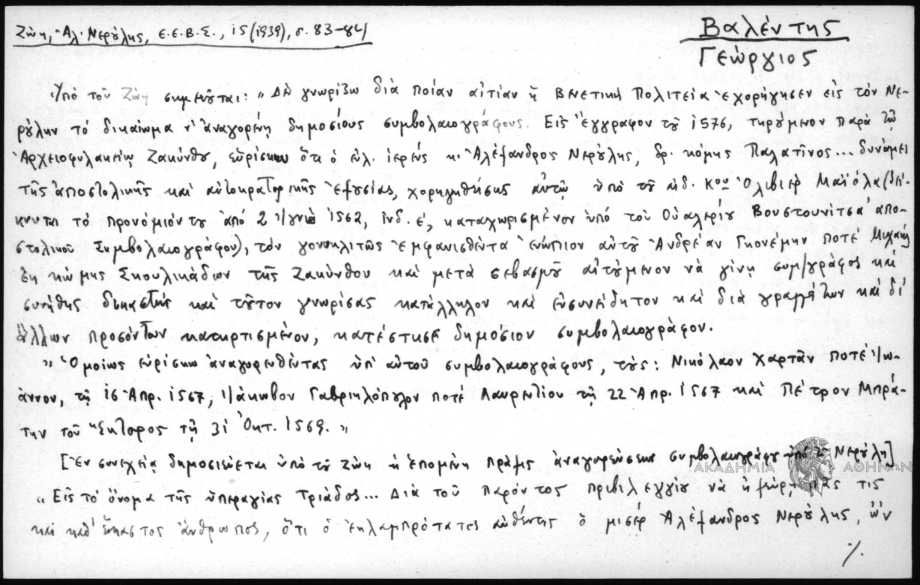 Ζώη, Ἀλ. Νερούλης, Ε.Ε.Β.Σ., ις (1939), σ. 83-84
Βαλέντης
Γεώργιος
Ὑπὸ τοῦ Ζώη σημειοῦται: "Δὲν γνωρίζω διὰ ποίαν αἰτίαν ἡ Βενετικὴ Πολιτεία ἐχορήγησεν εἰς τὸν Νε-
ρούλην τὸ δικαίωμα ν' ἀναγορεύῃ δημοσίους συμβολαιογράφους. Εἰς ἔγγραφον τοῦ 1576, τηρούμενον παρὰ τῷ
Ἀρχειοφυλακείῳ Ζακύνθου, εὑρίσκω ὅτι ὁ εὐλ. ἱερεὺς κ. Ἀλέξανδρος Νερούλης, δρ. κόμης Παλατῖνος... δυνάμει
τῆς ἀποστολικῆς καὶ αὐτοκρατορικῆς ἐξουσίας, χορηγηθείσης αὐτῷ ὑπὸ τοῦ αἰδ. κου Ὀλιβιὲρ Μαϊόλα (δεί-
κνυται τὸ προνόμιόν του ἀπὸ 2 Ἰουνίου 1562, ἰνδ. ε', καταχωρισμένον ὑπὸ τοῦ Οὐαλερίου Βουστουνίτσα ἀπο-
στολικοῦ Συμβολαιογράφου), τὸν γονυκλιτῶς ἐμφανισθέντα ἐνώπιον αὐτοῦ Ἀνδρέαν Γκονέμην ποτὲ Μιχαὴλ
ἐκ κώμης Σκουλικάδων τῆς Ζακύνθου καὶ μετὰ σεβασμοῦ αἰτούμενον νὰ γίνῃ συμ/γράφος καὶ
συνήθης δικαστὴς καὶ τοῦτον γνωρίσας κατάλληλον καὶ εὐσυνείδητον καὶ διὰ γραμμάτων καὶ δι'
ἄλλων προσόντων κατηρτισμένον, κατέστησε δημόσιον συμβολαιογράφον.
" Ὁμοίως εὑρίσκω ἀναγορευθέντας ὑπ' αὐτοῦ συμβολαιογράφους, τούς: Νικόλαον Χαρτᾶν ποτὲ Ἰω-
άννου, τῇ 16 Ἀπρ. 1567, Ἰάκωβον Γαβριηλόπουλον ποτὲ Λαυρεντίου τῇ 22 Ἀπρ. 1567 καὶ Πέτρον Μπρά-
την τοῦ Ἕκτορος τῇ 31 Ὀκτ. 1569."
[Ἐν συνεχείᾳ δημοσιεύεται ὑπὸ τοῦ Ζώη ἡ ἑπομένη πρᾶξις ἀναγορεύσεως συμβολαιογράφου ὑπὸ τοῦ Νερούλη]
"Εἰς τὸ ὄνομα τῆς ὑπεραγίας Τριάδος... Διὰ τοῦ παρόντος πριβιλεγγίου νὰ ἠξεύρῃ πᾶς τις
καὶ καθ' ἕκαστος ἄνθρωπος, ὅτι ὁ ἐκλαμπρότατος αὐθέντης ὁ μισὲρ Ἀλέξανδρος Νερούλης, ὢν
ΑΚΑΔΗΜΙΑ ΑΘΗΝΩΝ
./.